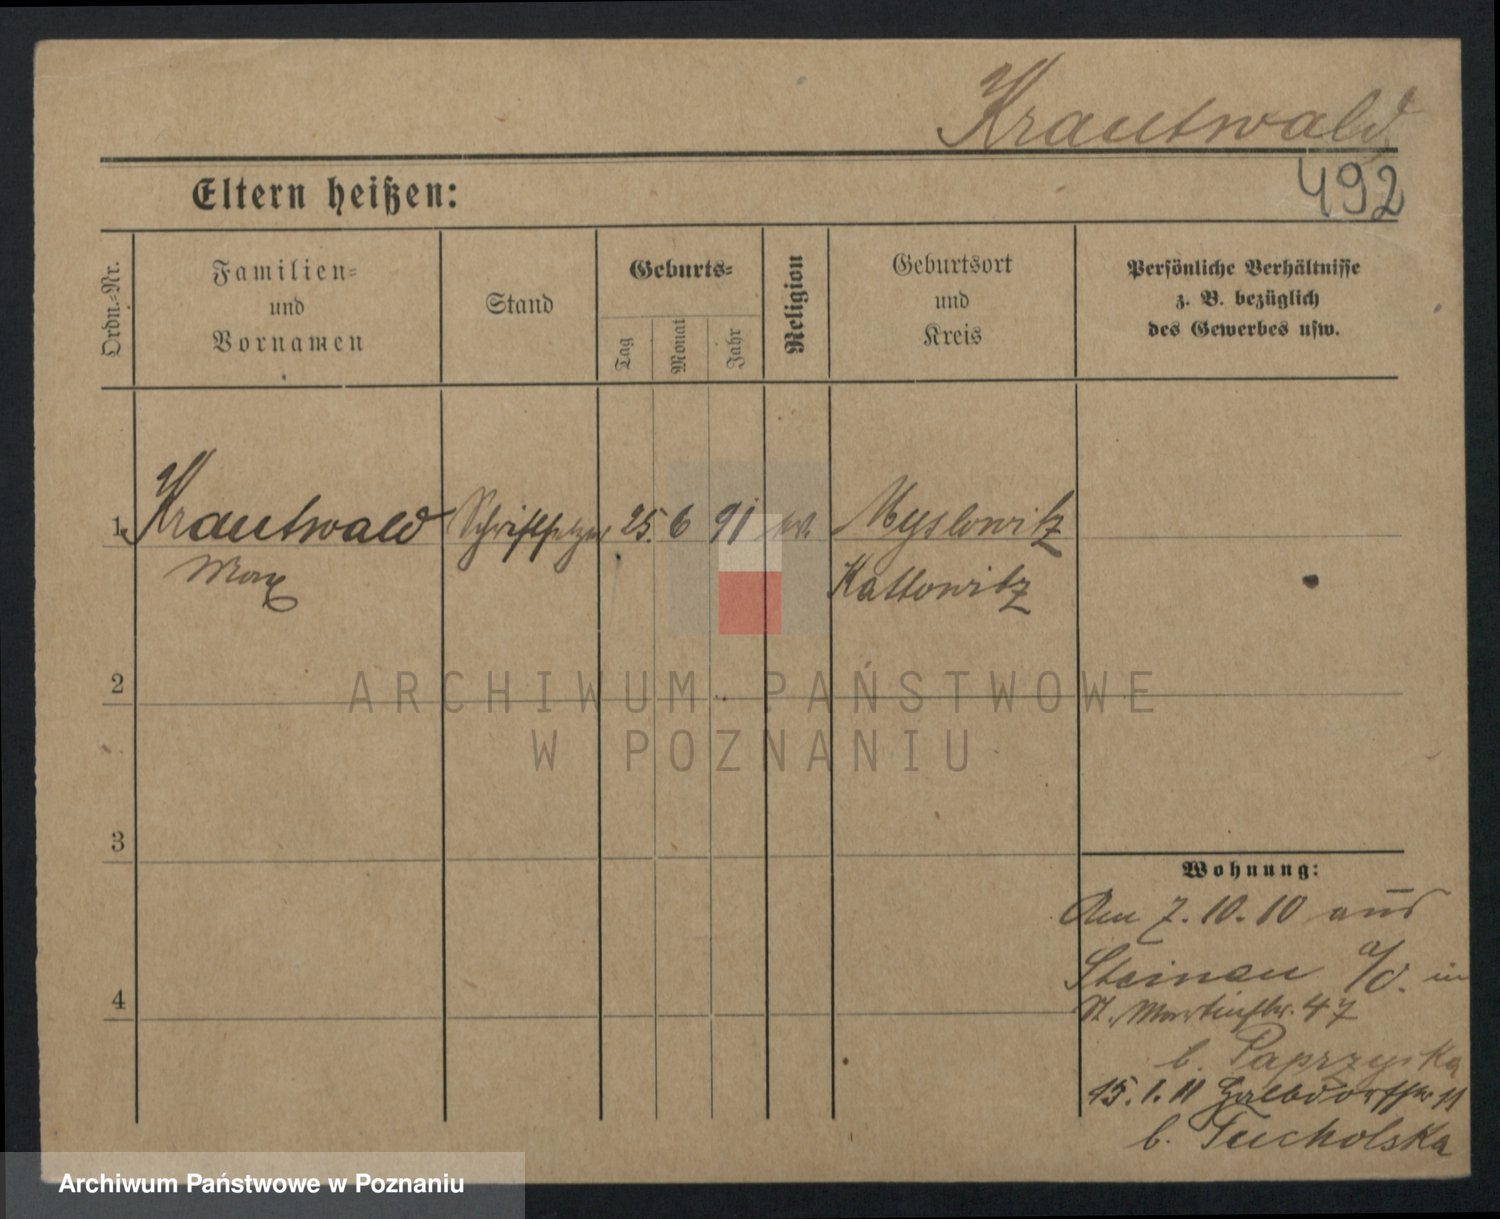 Krautwald
492
Eltern heißen:
Ordn.-Nr.
Familien-
und
Vornamen
Stand
Geburts-
Tag
Monat
Jahr
Religion
Geburtsort
und
Kreis
Persönliche Verhältnisse
z. B. bezüglich
des Gewerbes usw.
1 Krautwald Schriftsetzer 25. 6 91 ev. Myslowitz
Max Kattowitz
2
ARCHIWUM PAŃSTWOWE
W POZNANIU
3
Wohnung:
Am 7.10.10 aus
Steinau a/O. in
4
St. Martinstr. 47
b. Paprzycka
15.1.11 Halbdorfstr 11
b. Tucholska
Archiwum Państwowe w Poznaniu